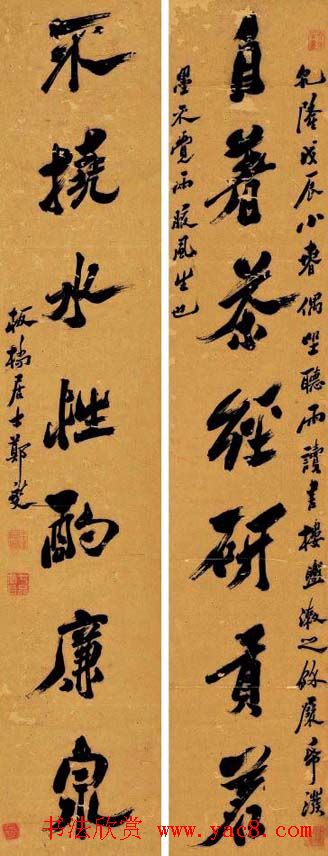 乾隆戊辰小春偶坐聽雨讀書樓盥漱之餘展帋濮
墨不覺兩腋風生也
自著茶經研貢茗
不撓水性酌廉泉
板橋居士鄭燮
书法欣赏 www.yac8.com